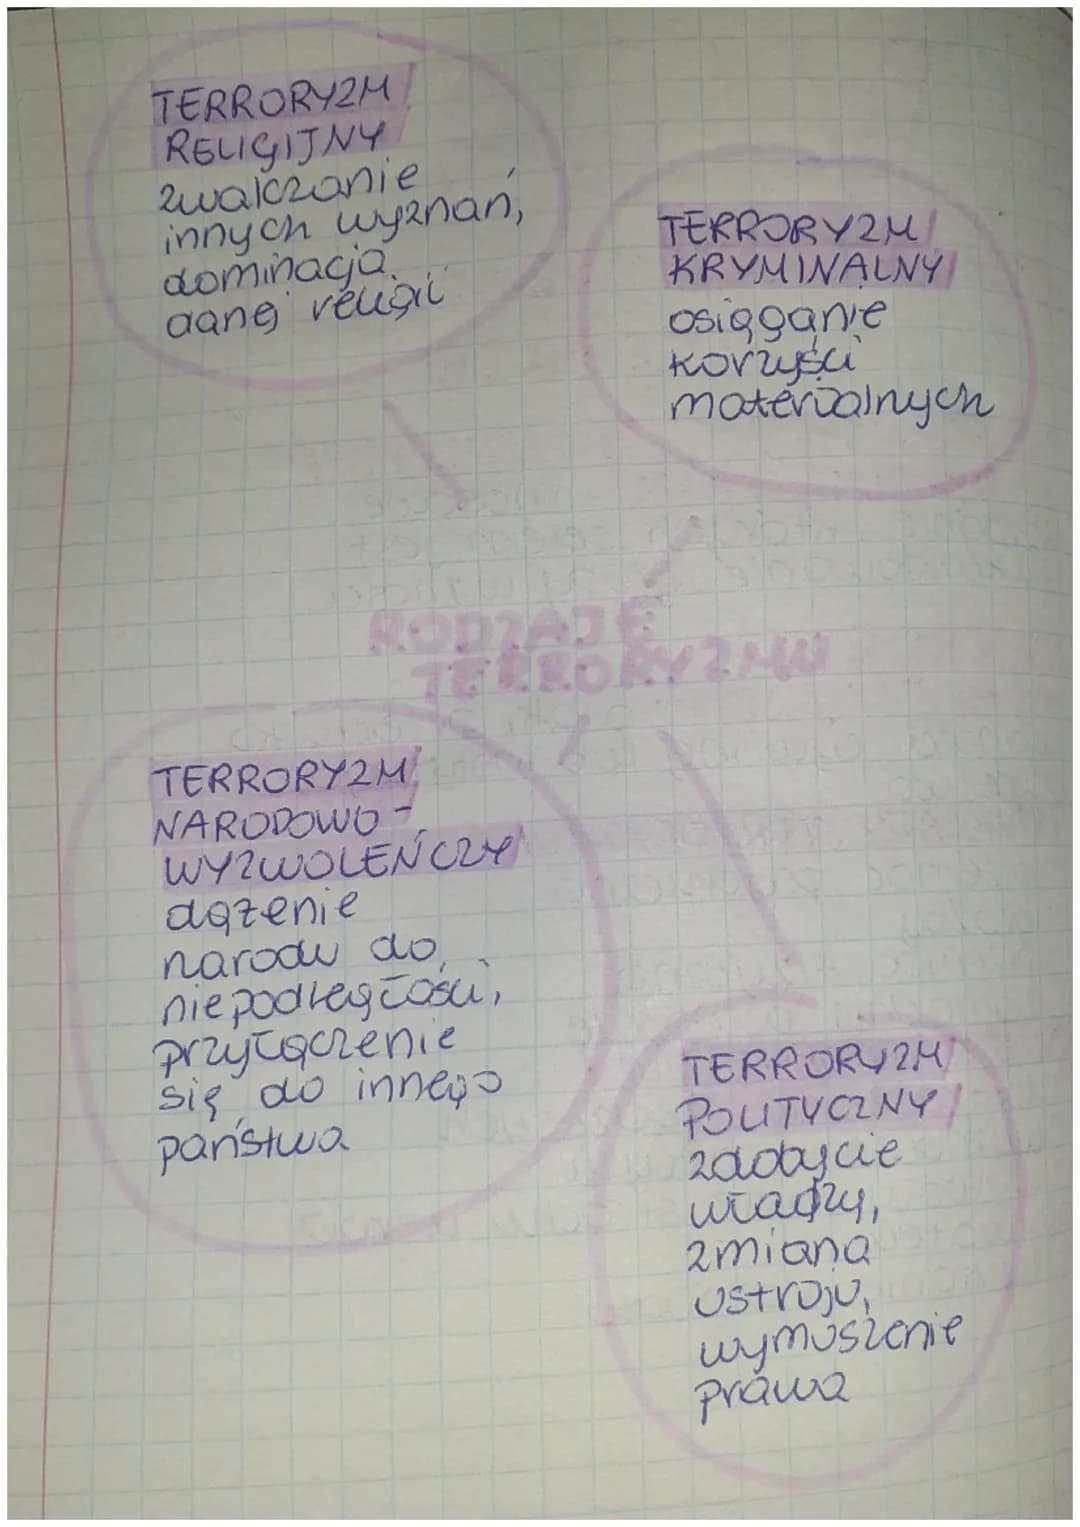 TERRORYZM
RELIGIJNY
zwalczanie
innych wyznań,
dominacja
danej religii
TERRORYZM
KRYMINALNY
osiąganie
korzyści
materialnych
RODZAJE
TERRORYZMU
TERRORYZM
NARODOWO-
WYZWOLEŃCZY
dążenie
narodu do
niepodległości,
przyłączenie
się do innego
państwa
TERRORYZM
POLITYCZNY
zdobycie
władzy,
zmiana
ustroju,
wymuszenie
prawa